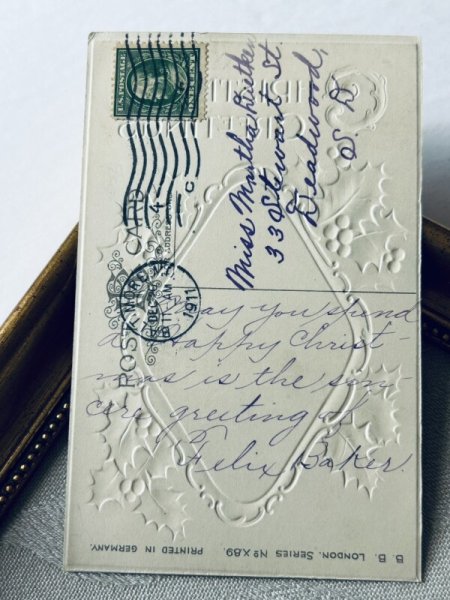 U.S. POSTAGE
ONE CENT
POST CARD
1911
Miss Martha
33 Stewart St
Deadwood,
S D
May you spend
a Happy Christ-
mas is the sin-
cere greeting of
Felix Baker.
B. B. LONDON. SERIES No X.89.
PRINTED IN GERMANY.